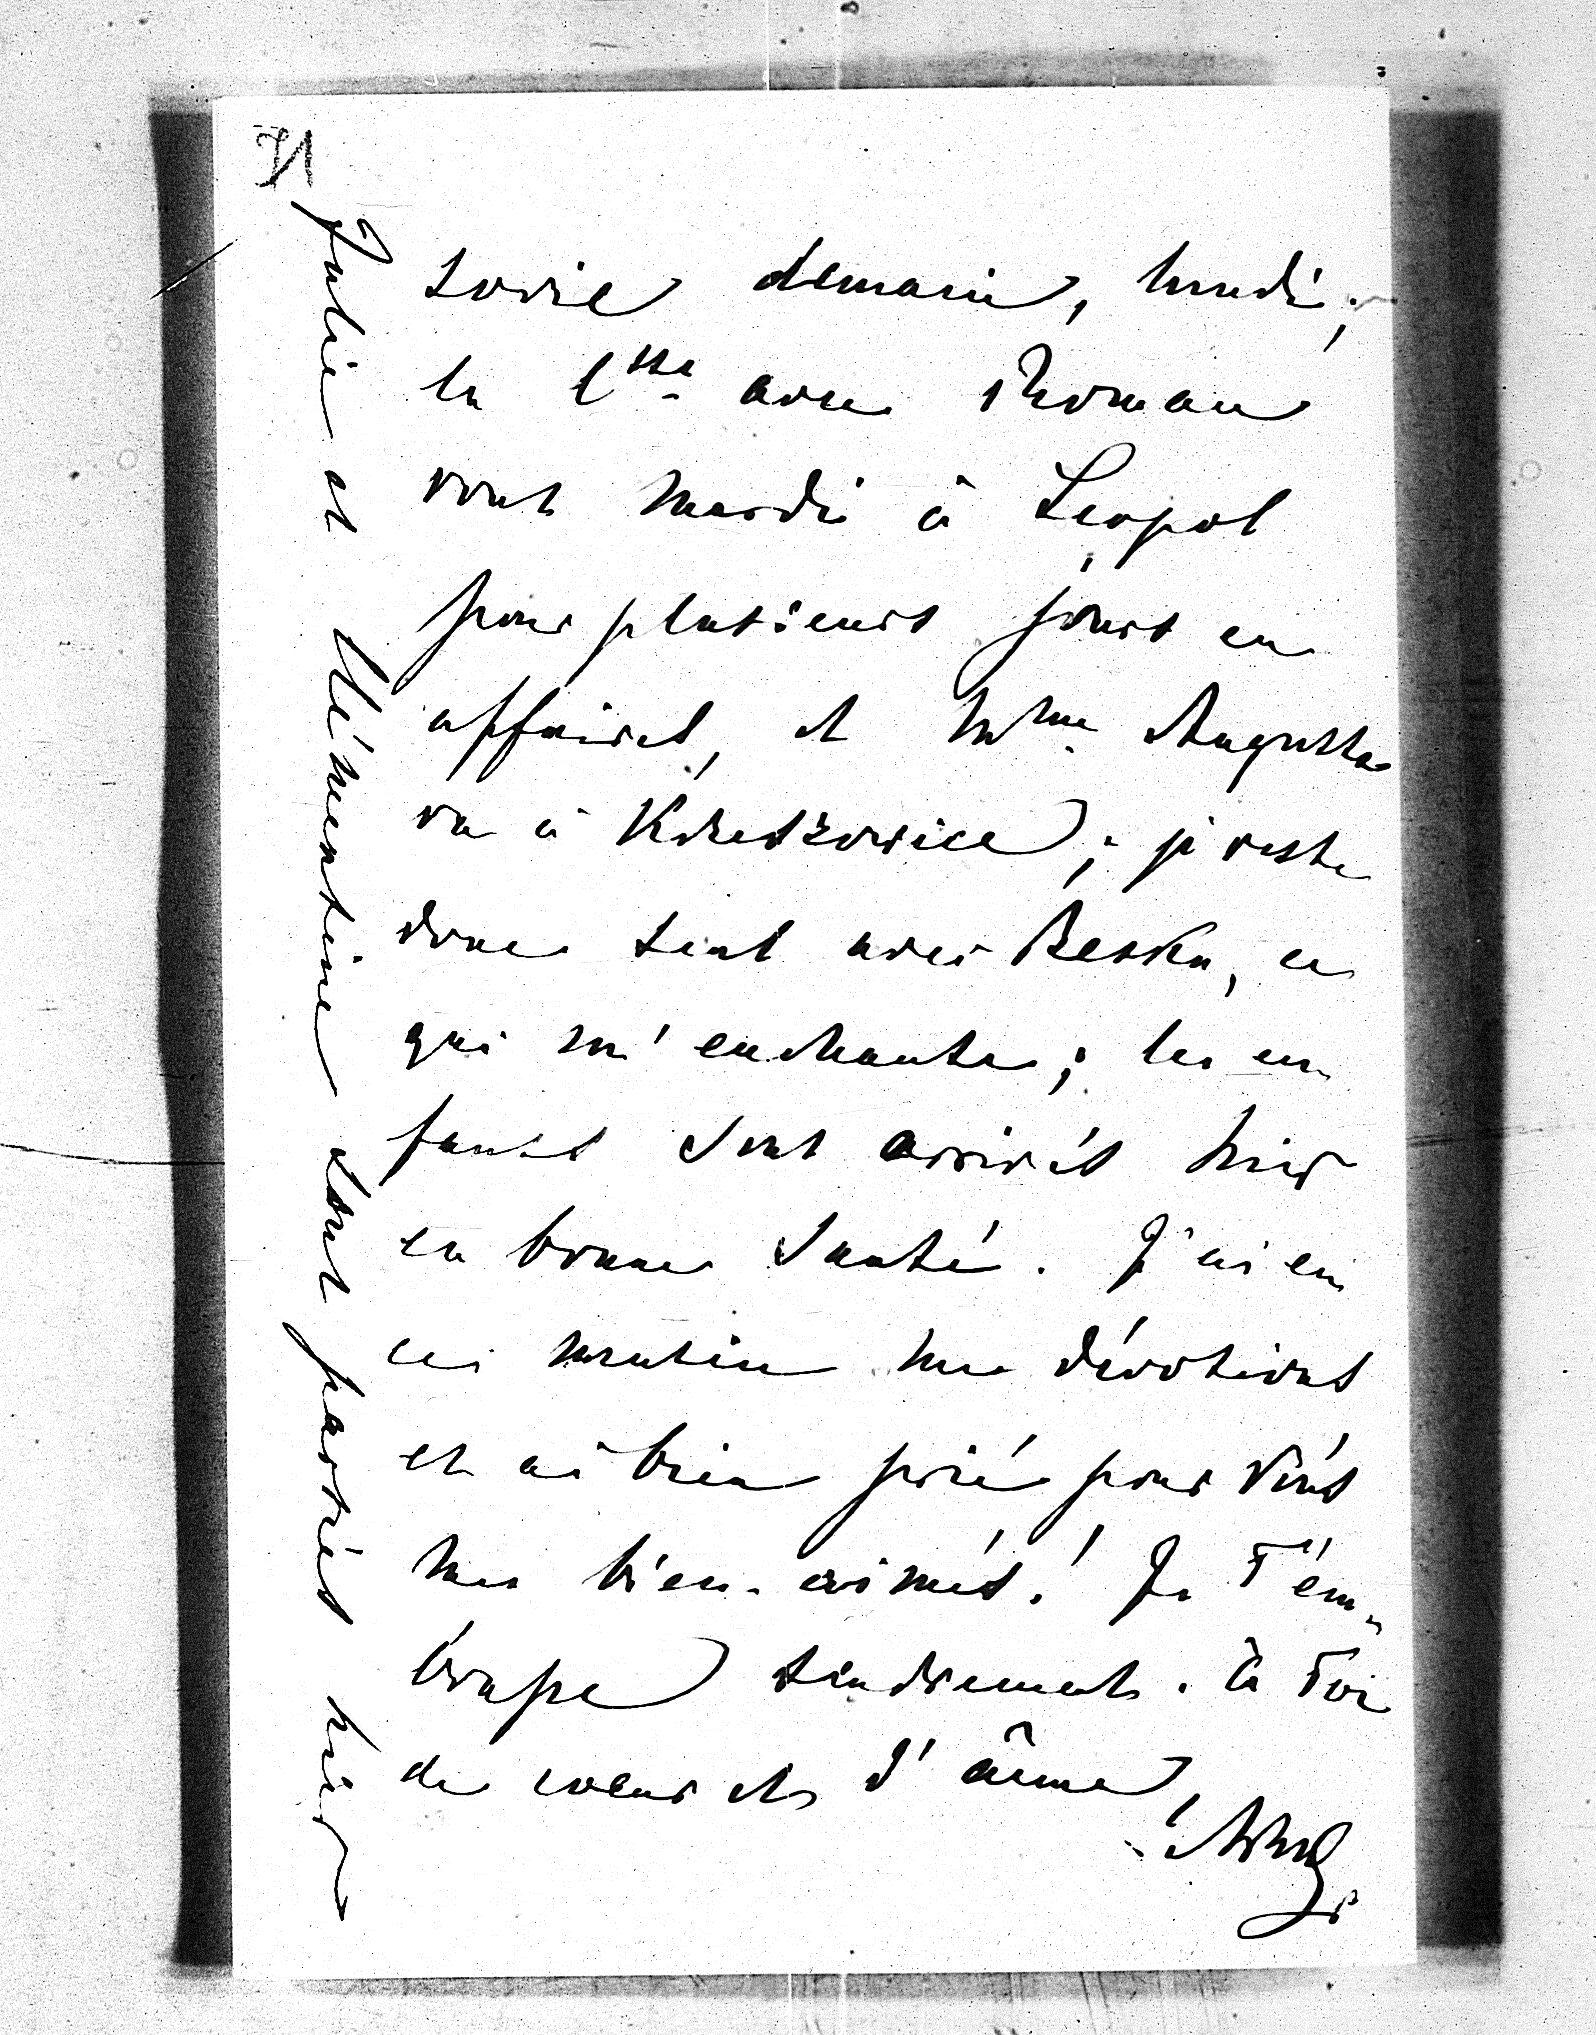 71
sovie demain, lundi;
la Csse avec Roman
vont mardi à Léopol
pour plusieurs jours en
affaires, et Mme Augusta
va à Krzeszowice; je reste
donc seul avec Beska, ce
qui m'enchante; les en
fants sont arrivés hier
en bonne santé. J'ai eu
ce matin me dévotions
et ai bien prié pour Vous
mes bien-aimés! Je T'em-
brasse tendrement. à Toi
de coeur et d'âme,
Julie et Clémentine sont parties hier